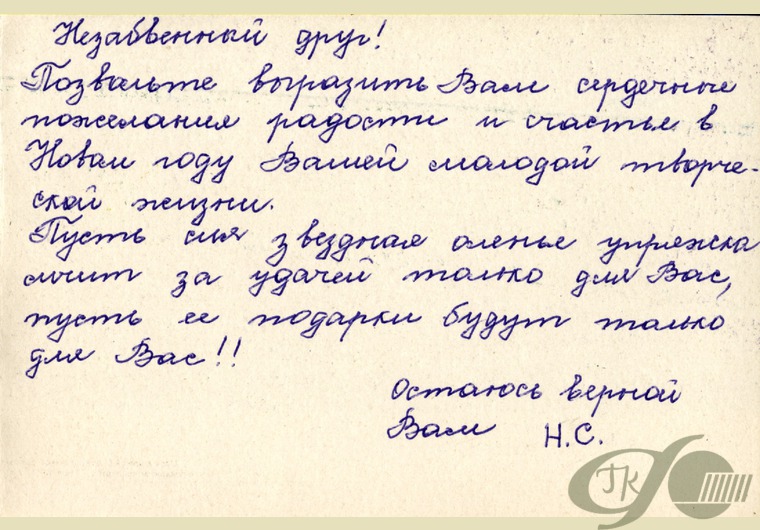 Незабвенный друг!
Позвольте выразить Вам сердечные
пожелания радости и счастья в
Новом году Вашей молодой творче-
ской жизни.
Пусть сия звездная оленья упряжка
мчит за удачей только для Вас,
пусть ее подарки будут только
для Вас!!
Остаюсь верной
Вам Н.С.
ГК